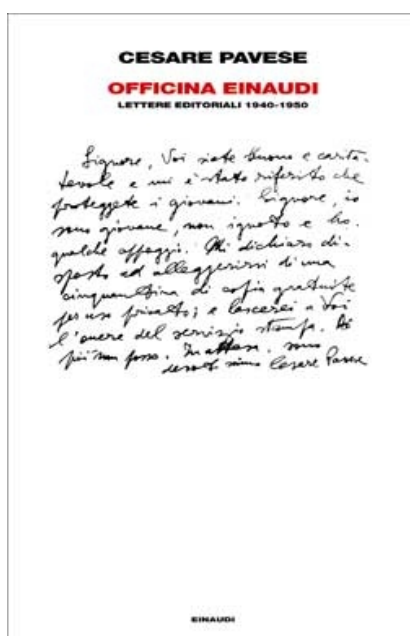 CESARE PAVESE
OFFICINA EINAUDI
LETTERE EDITORIALI 1940-1950
Signore, Voi siete buono e carita-
tevole e mi è stato riferito che
proteggete i giovani. Signore, io
sono giovane, non ignoto e ho
qualche appoggio. Mi dichiaro di-
sposto ad alleggerirvi di una
cinquantina di copie gratuite
per uso privato; e lascerei a Voi
l'onere del servizio stampa. Di
più non posso. In attesa, sono
Cesare Pavese
EINAUDI